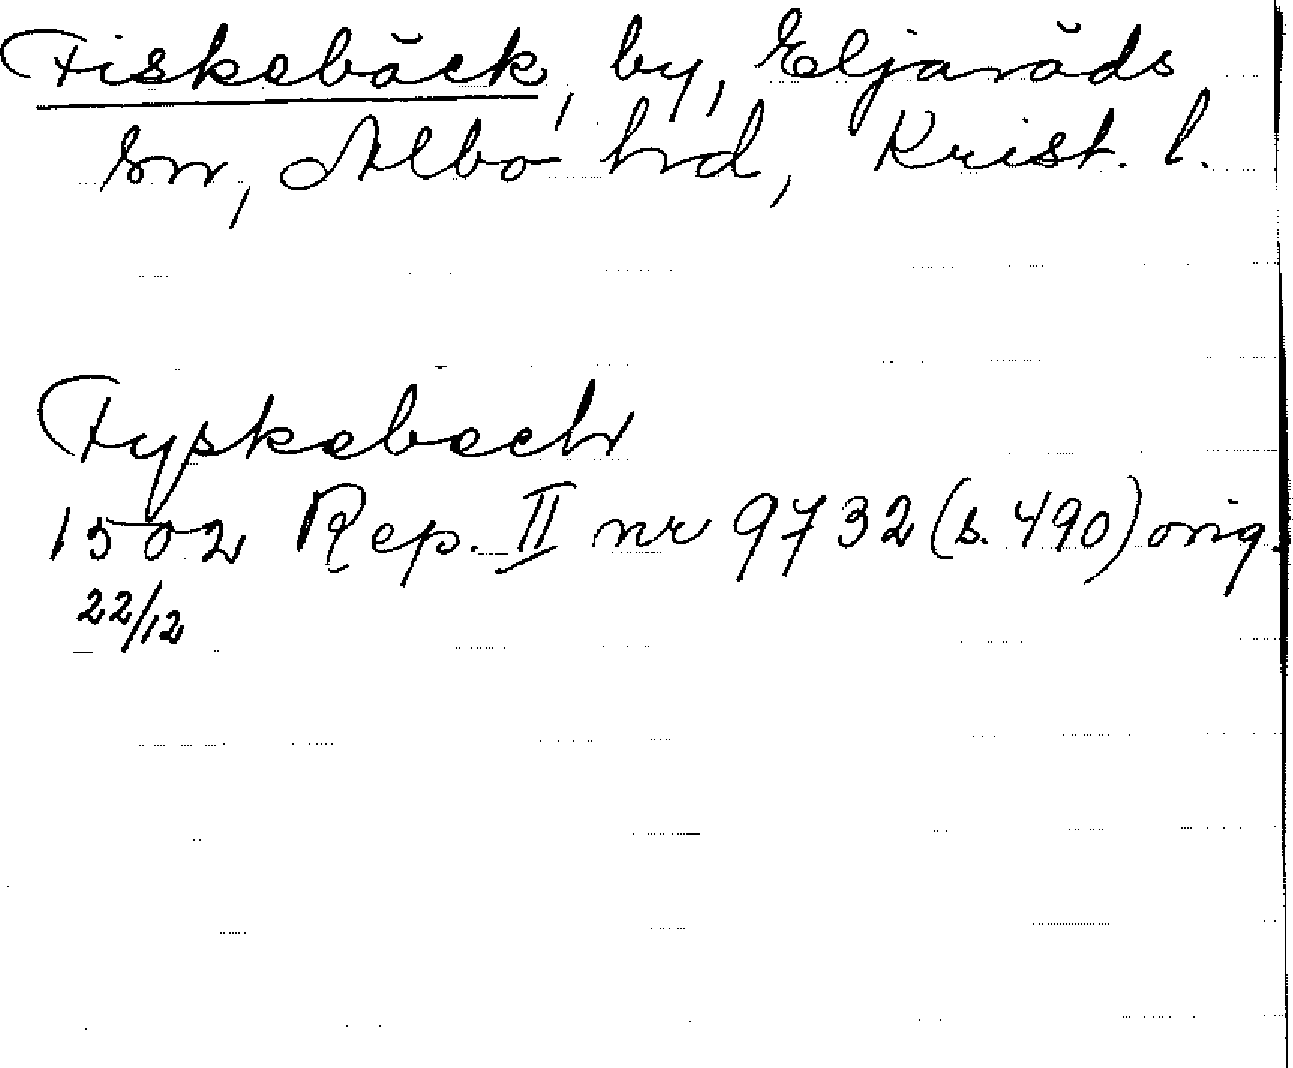 Fiskebäck, by, Eljaröds
sn, Albo hd, Krist. l.
Fyskebeck
1502 Rep. II nr 9732 (s. 490) orig.
22/12